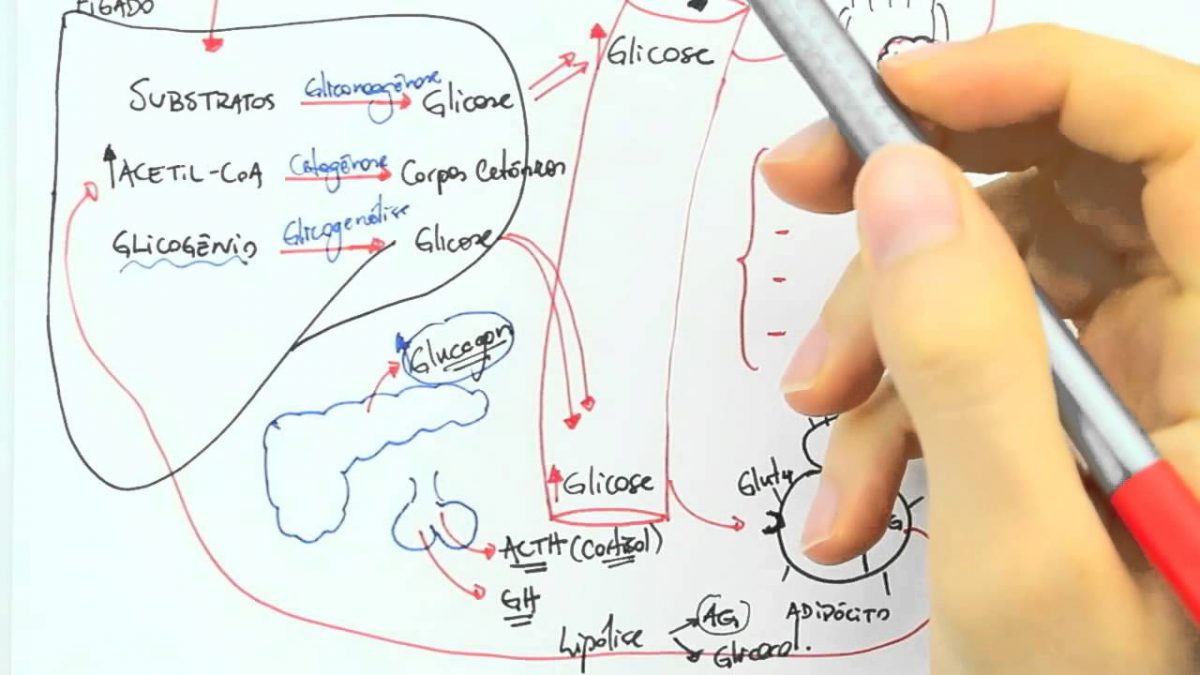 FÍGADO
SUBSTRATOS Gliconeogênese Glicose
Glicose
ACETIL-CoA Cetogênese Corpos Cetônicos
GLICOGÊNIO Glicogenólise Glicose
Glucagon
Glicose
Glut4
G
ACTH (Cortisol)
GH
ADIPÓCITO
Lipólise
AG
Glicerol